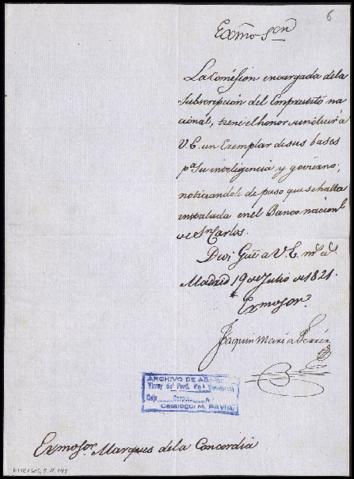 6
Exmo Sor
La Comision encargada de la
Subscripcion del Emprestito na
cional, tiene el honor remitir á
V.E. un Exemplar de sus bases
pa su inteligencia y govierno;
noticiandole de paso que se halla
instalada en el Banco nacional
de Sn Carlos.
Dios Gue a V.E. ms as
Madrid 19 de Julio de 1821.
Exmo Sor.
Joaquin Maria Ferrer
ARCHIVO DE
Caja
Catálogo: M. PAVÍA
Exmo Sor. Marques de la Concordia